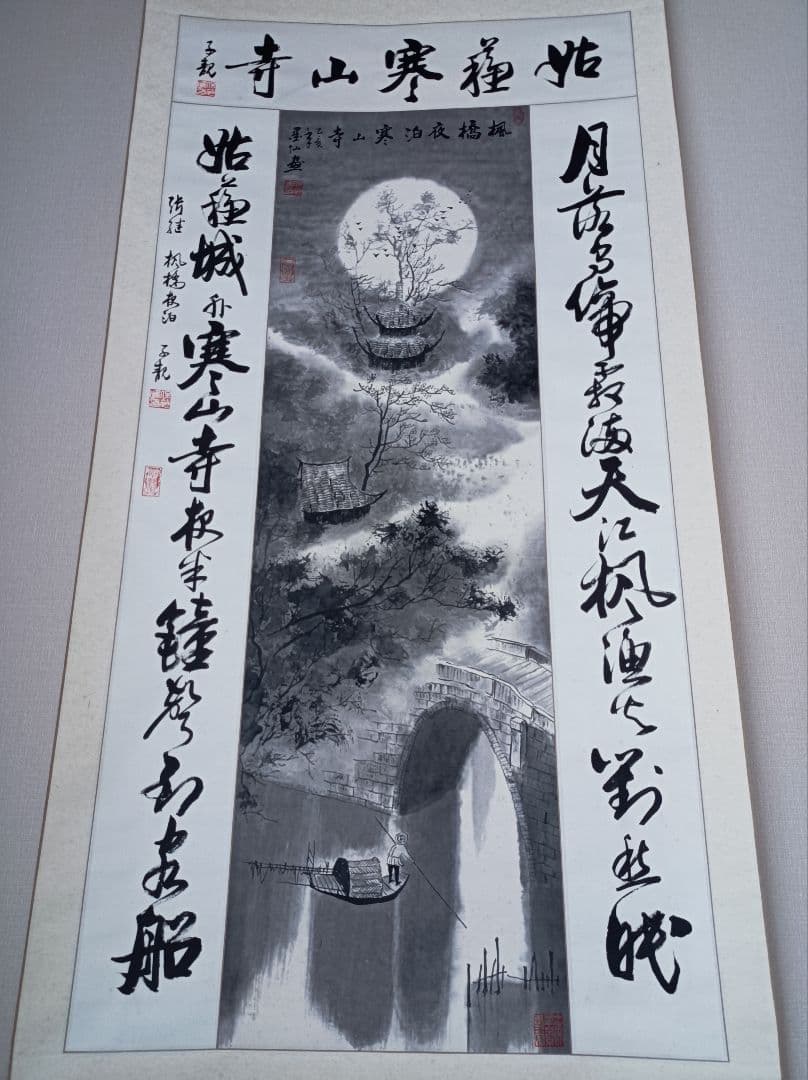 姑蘇寒山寺
月落烏啼霜滿天江楓漁火對愁眠
楓橋夜泊寒山寺
墨仙畫
姑蘇城外寒山寺夜半鐘聲到客船
張継 楓橋夜泊